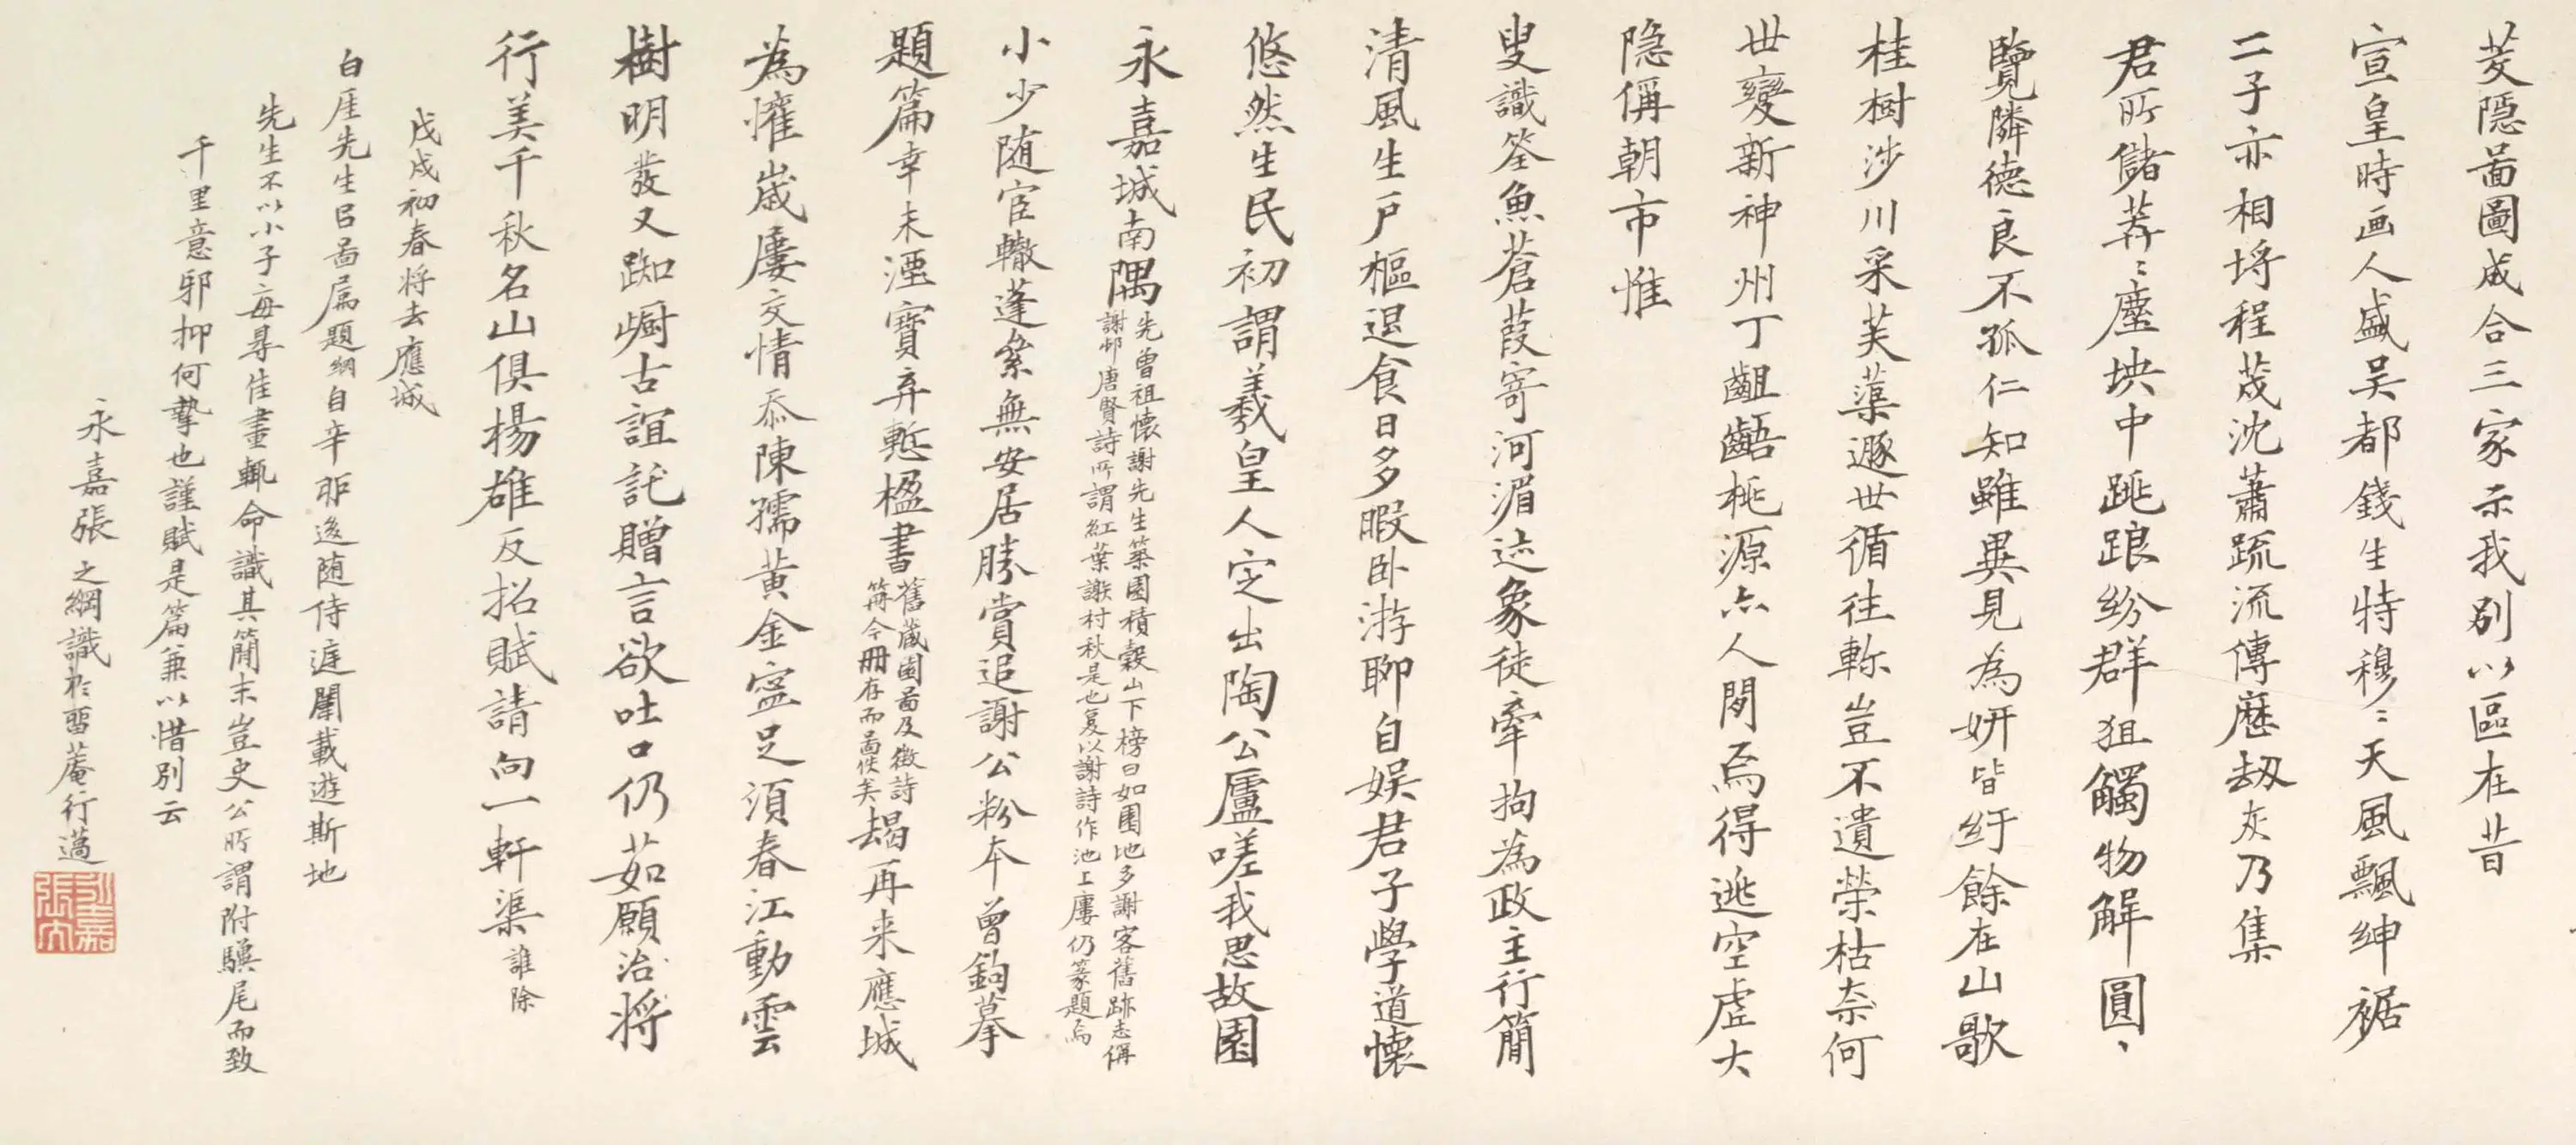 芰隱啚圖成合三家示我別以區在昔
宣皇時画人盛吴都錢生特穆〻天風飄紳裾
二子亦相埒程茂沈蕭疏流傳歷劫灰乃集
君所儲莽〻塵坱中跳踉紛群狙觸物解圓丶
覽隣德良不孤仁知雖異見為妍皆紆餘在山歌
桂樹涉川采芙蕖遯世循往軫豈不遺榮枯奈何
世變新神州丁齟齬桃源亦人間焉得逃空虛大
隐偁朝市惟
叟識筌魚蒼葭寄河湄迹象徒牽拘為政主行簡
清風生戶樞退食日多暇卧游聊自娱君子學道懷
悠然生民初謂羲皇人定出陶公廬嗟我思故園
永嘉城南隅
先曾祖懷謝先生築園積穀山下榜曰如園地多謝客舊跡志偁
謝邨唐賢詩所謂紅葉謝村秋是也复以謝詩作池上廔仍篆題焉
小少随宦轍蓬絫無安居勝賞追謝公粉本曾鉤摹
題篇幸未湮寶弆慙楹書
舊藏園啚及徵詩
冊今冊存而啚佚矣
朅再来應城
為慛嵗屢交情忝陳孺黄金寔足須春江動雲
樹明發又踟幮古誼託贈言欲吐口仍茹願治将
行美千秋名山俱楊雄反招賦請向一軒渠誰除
戊戌初春将去應城
白厓先生㠯啚属題綱自辛
後随侍
庭闈載遊斯地
先生不以小子每尋佳畫輒命識其簡末豈史公所謂附驥尾而致
千里意邪抑何摯也謹賦是篇兼以惜別云
永嘉張之綱識於畱菴行邁
永嘉張